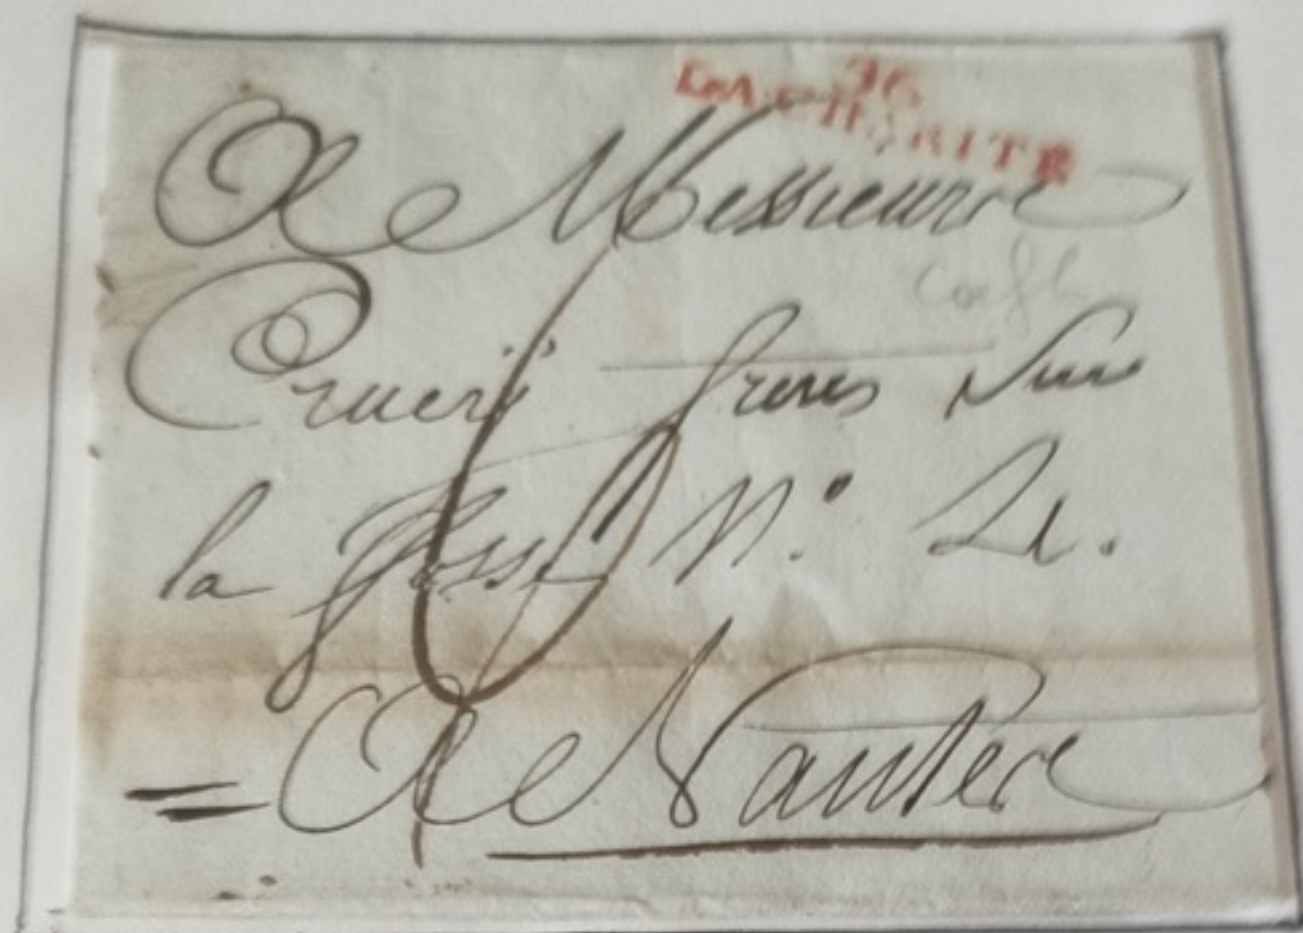 56
LA CHARITÉ
A Messieurs
frères Sur
la fosse N.° 21.
= A Nantes